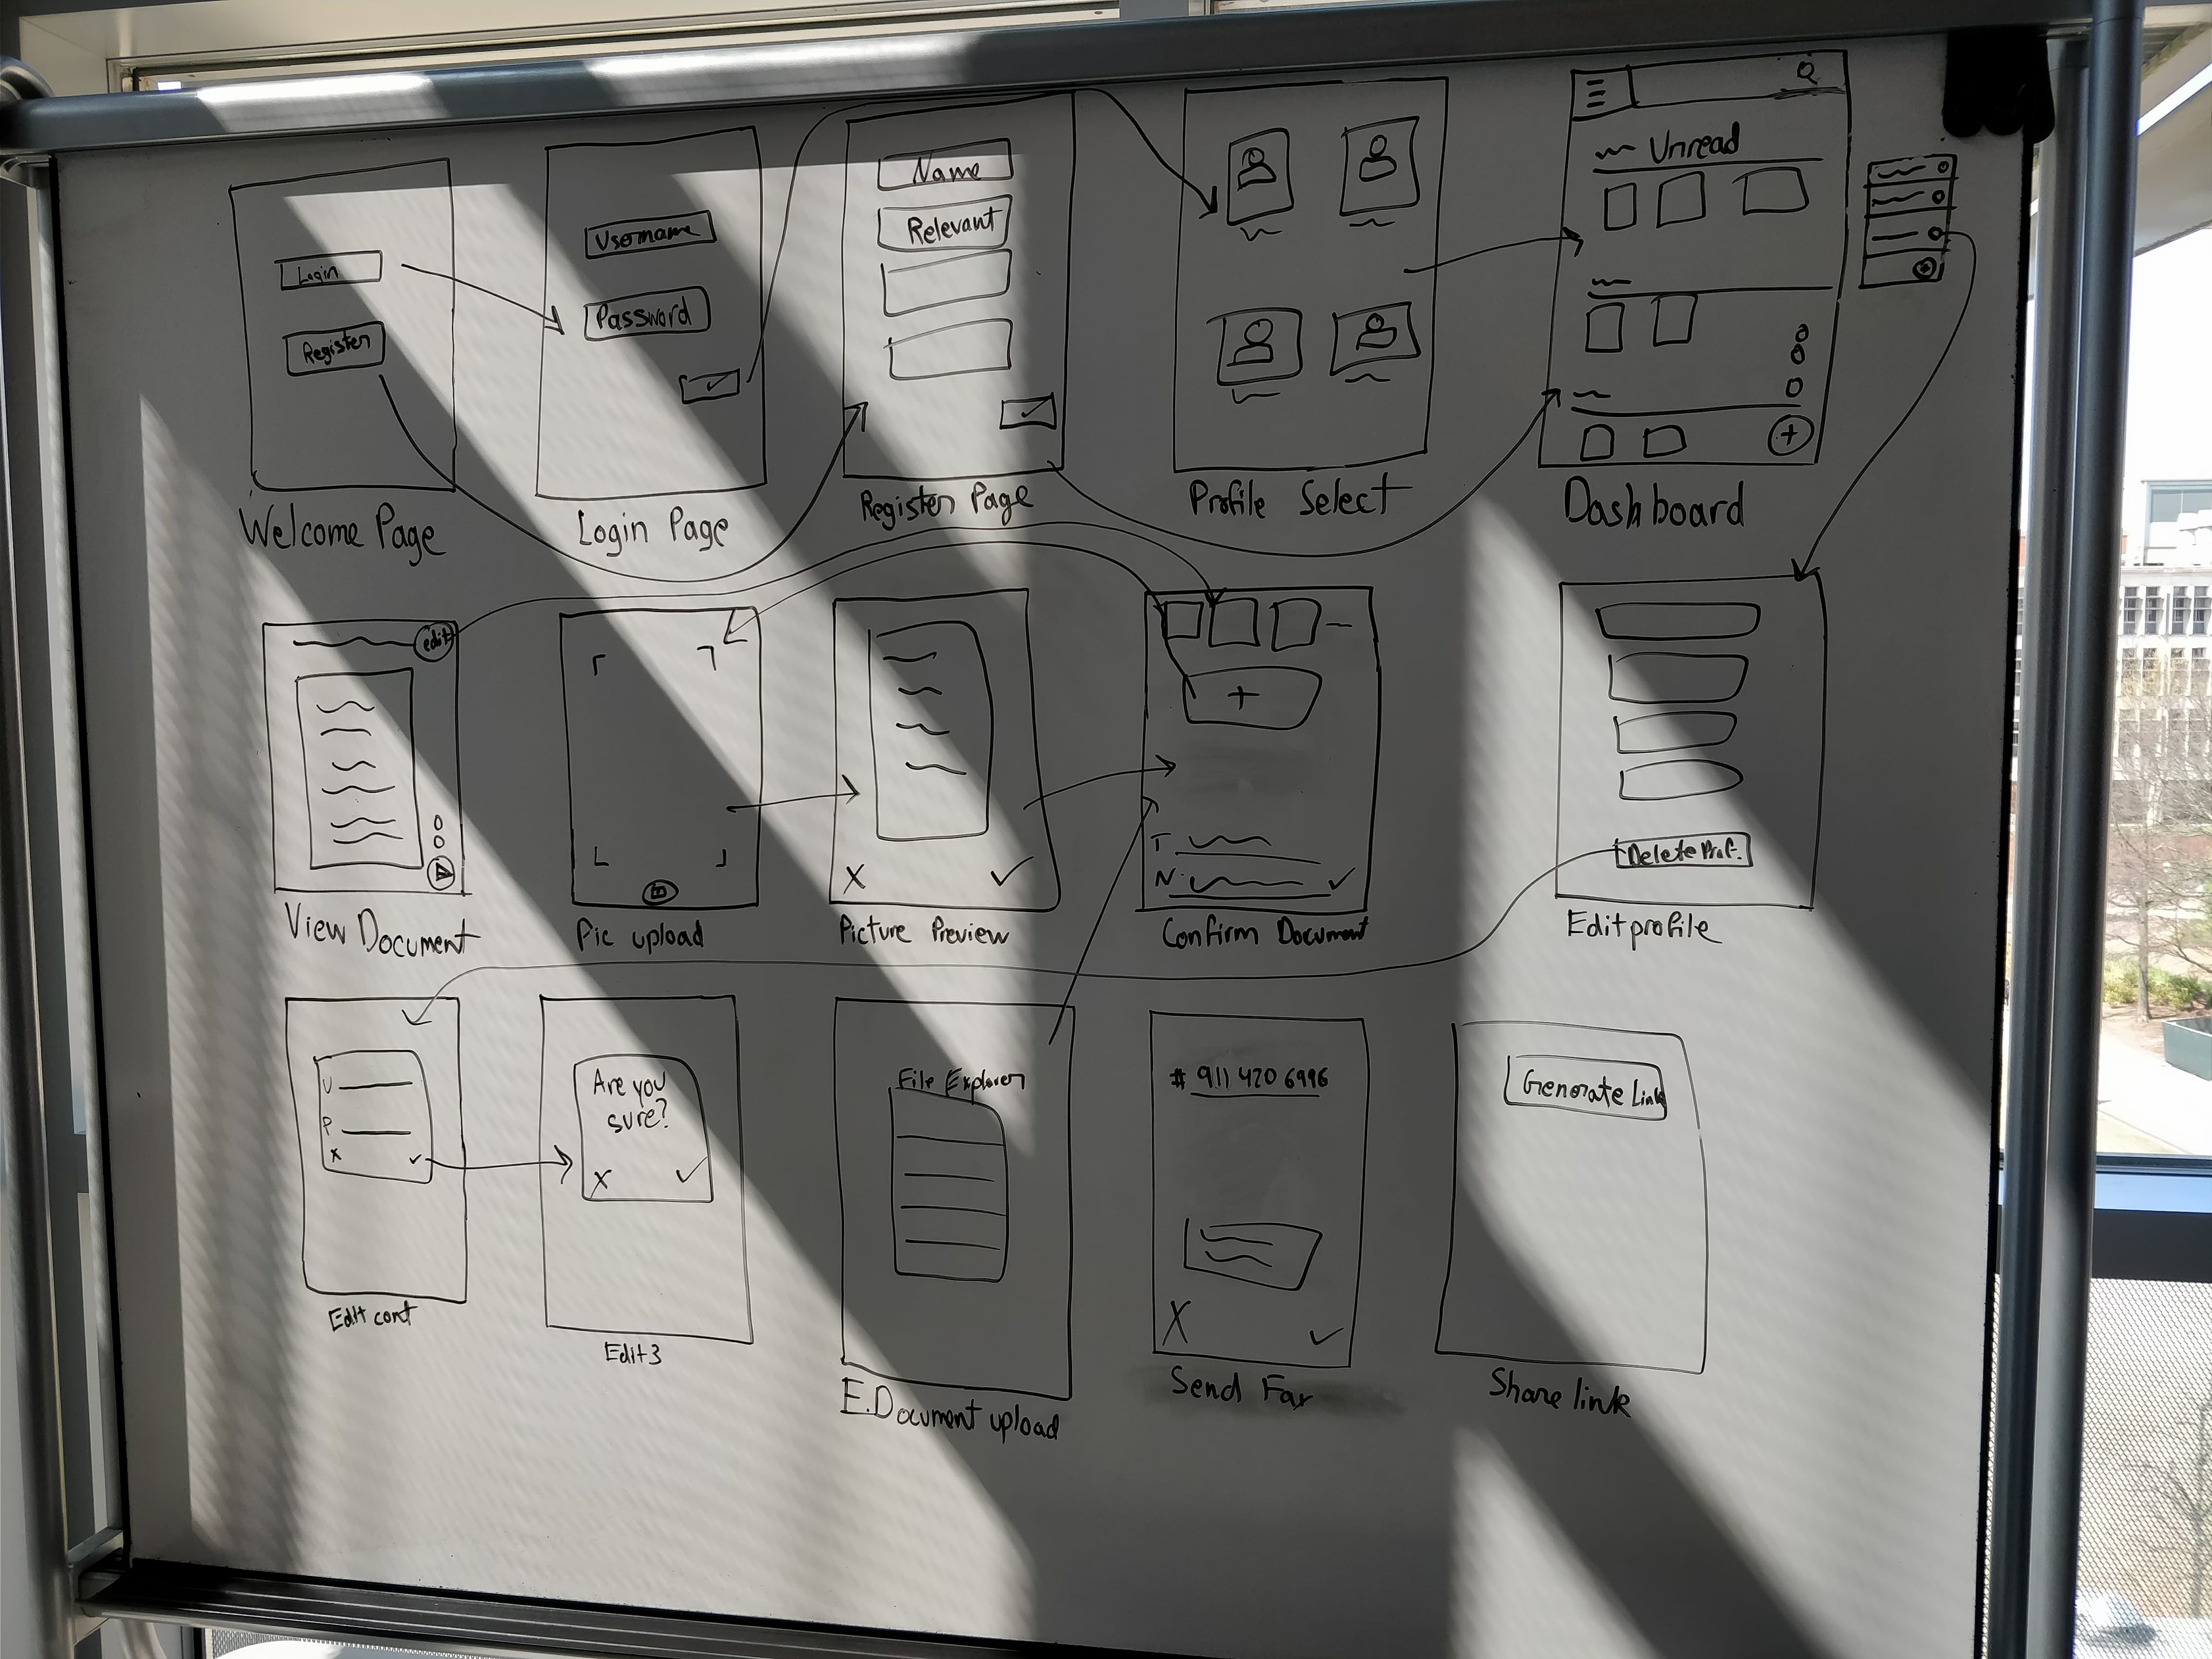 Login
Register
Welcome Page
Username
Password
Login Page
Name
Relevant
Register Page
Profile Select
Unread
Dashboard
edit
View Document
Pic upload
X
Picture Preview
+
T
N:
Confirm Document
Delete Prof.
Edit profile
U
P
X
Edit cont
Are you
sure?
X
Edit 3
File Explorer
E.Document upload
# 911 420 6996
X
Send Fax
Generate Link
Share link